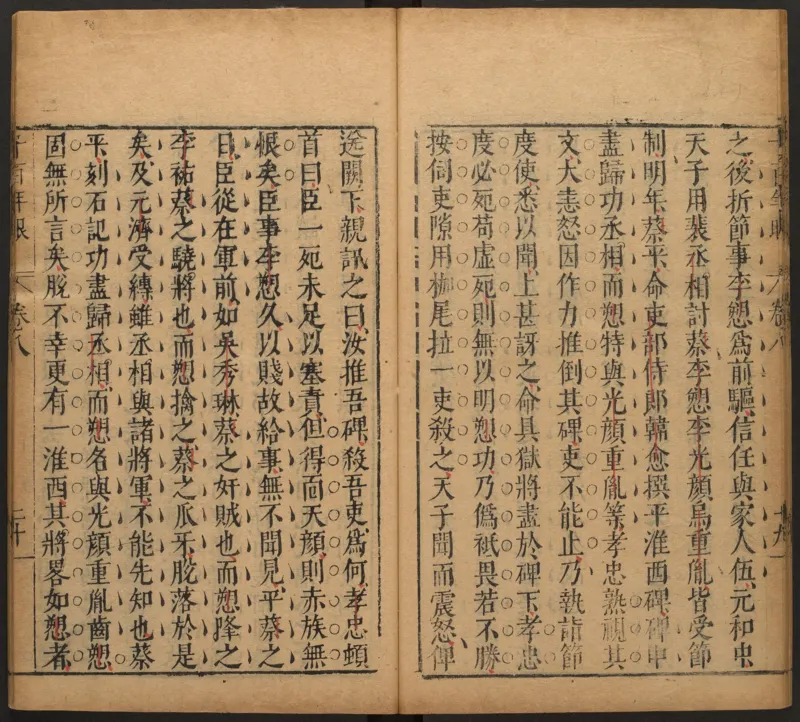 之後折節事李愬為前驅信任與家人伍元和中
天子用裴丞相計蔡李愬李光顔烏重胤皆受節
制明年蔡平命吏部侍郎韓愈撰平淮西碑碑中
盡歸功丞相而愬特與光顔重胤等孝忠熟視其
文大恚怒因作力推倒其碑吏不能止乃執詣節
度使悉以聞上甚訝之命具獄將盡於碑下孝忠
度必宛苟虛宛則無以明愬功乃僞祇畏若不勝
按伺吏隙用枷尾拉一吏殺之天子聞而震怒俾
卷八
十九
送闕下親訊之曰汝推吾碑殺吾吏為何孝忠頓
首曰臣一宛未足以塞責但得面天顔則赤族無
恨矣臣事李愬久以賤故給事無不聞見平蔡之
日臣從在軍前如吳秀琳蔡之奸賊也而愬降之
李祐蔡之驍將也而愬擒之蔡之爪牙脫落於是
矣及元濟受縛雖丞相與諸將軍不能先知也蔡
平刻石記功盡歸丞相而愬名與光顔重胤齒愬
固無所言矣脫不幸更有一淮西其將畧如愬者
千百年眼
卷八
二十